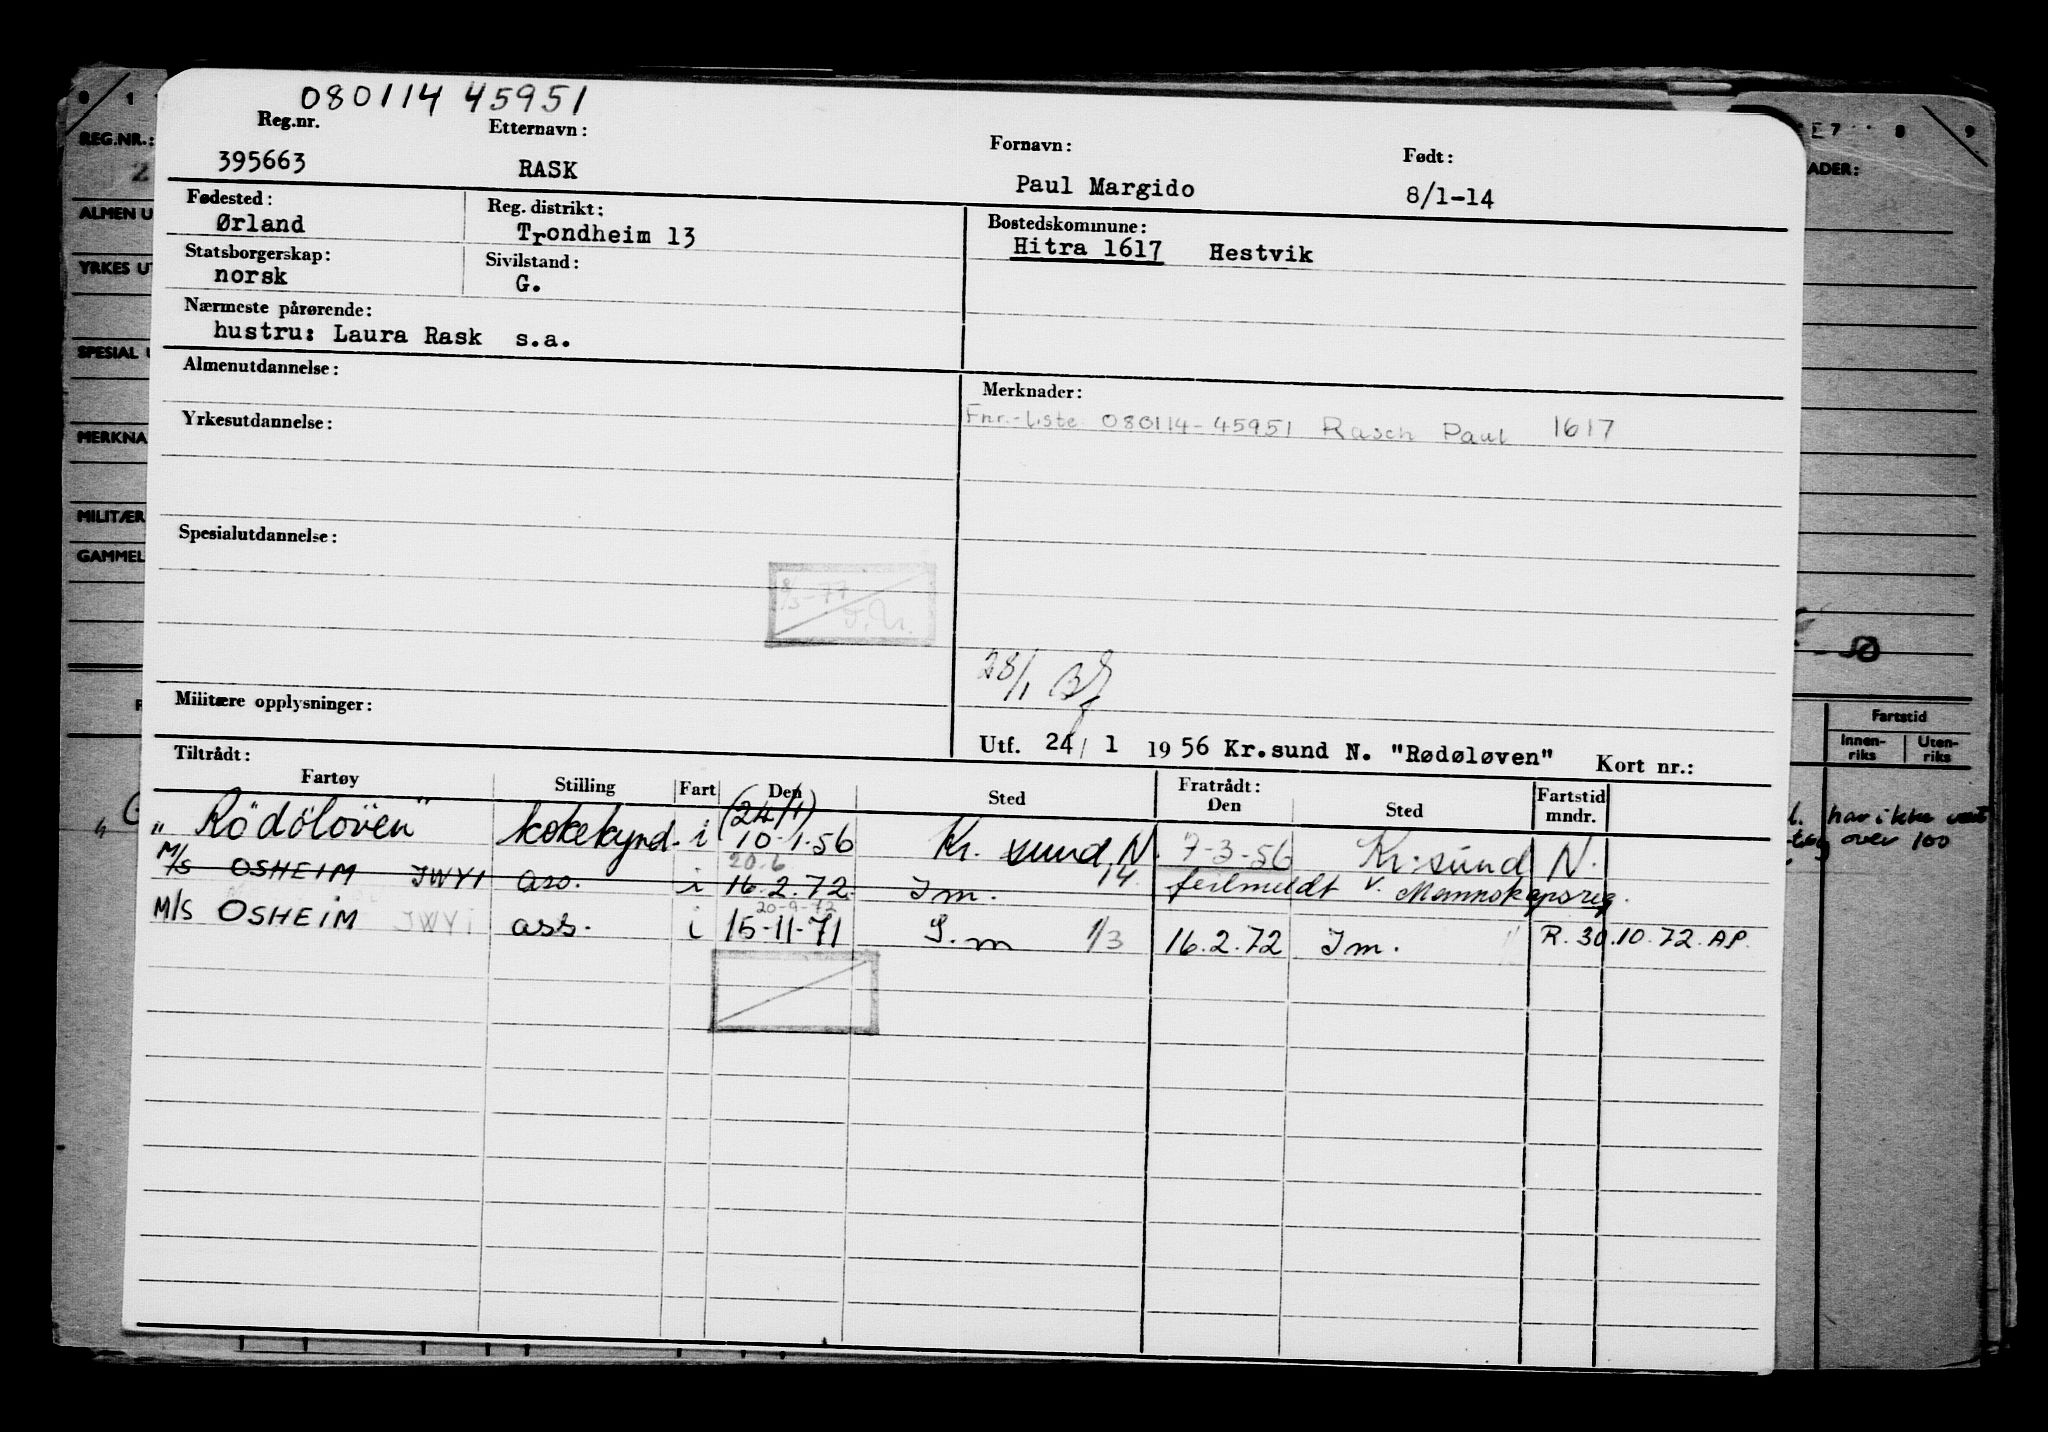 080114 45951
Reg.nr. Etternavn: Fornavn: Født:
395663 RASK Paul Margido 8/1-14
Fødested: Reg. distrikt: Bostedskommune:
Ørland Trondheim 13 Hitra 1617 Hestvik
Statsborgerskap: Sivilstand:
norsk G.
Nærmeste pårørende:
hustru: Laura Rask s.a.
Almenutdannelse: Merknader:
Fnr.-liste 080114-45951 Rasch Paul 1617
Yrkesutdannelse:
Spesialutdannelse:
28/1
Militære opplysninger:
Utf. 24/1 1956 Kr.sund N. "Rødøløven" Kort nr.:
Tiltrådt: Fratrådt:
Fartøy Stilling Fart Den Sted Den Sted Fartstid mndr.
(24/1)
"Rödölöven" kokekynd. i 10-1-56 Kr. sund N. 7-3-56 Kr. sund N.
20.6
M/S OSHEIM JWYI ass. i 16.2.72 Im. 1/4 feilmeldt v. Mannskapsreg.
20-9-72
M/S OSHEIM JWYI ass. i 15-11-71 S.m 1/3 16.2.72 Im. R. 30.10.72. AP.
REG.NR.:
ALMEN U
YRKES UT
SPESIAL U
MERKNA
MILITÆR
GAMMEL
ADER:
Fartstid
Innen-riks Uten-riks
har ikke vært
over 100